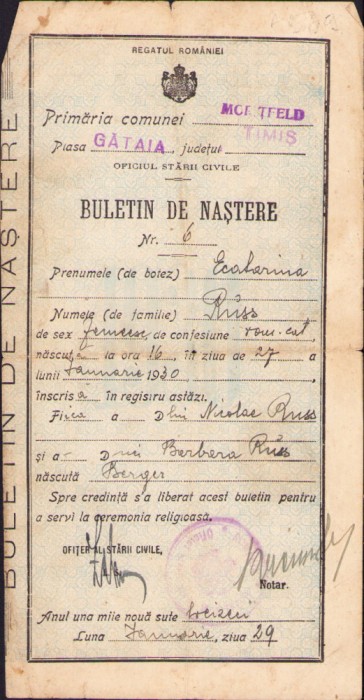 REGATUL ROMÂNIEI
Primăria comunei MORIȚFELD
Plasa GĂTAIA, județul TIMIȘ
OFICIUL STĂRII CIVILE
BULETIN DE NAȘTERE
BULETIN DE NAȘTERE
Nr. 6
Prenumele (de botez) Ecatarina
Numele (de familie) Rüss
de sex femeesc, de confesiune rom-cat
născută la ora 16, în ziua de 27 a
lunii Ianuarie 1930,
înscrisă în registru astăzi.
Fiica a Dlui Nicolae Russ
și a - Dnei Barbara Rüss
născută Berger
Spre credință s'a liberat acest buletin pentru
a servi la ceremonia religioasă.
OFIȚER AL STĂRII CIVILE,
Notar.
Anul una mile nouă sute treizeci
Luna Ianuarie, ziua 29